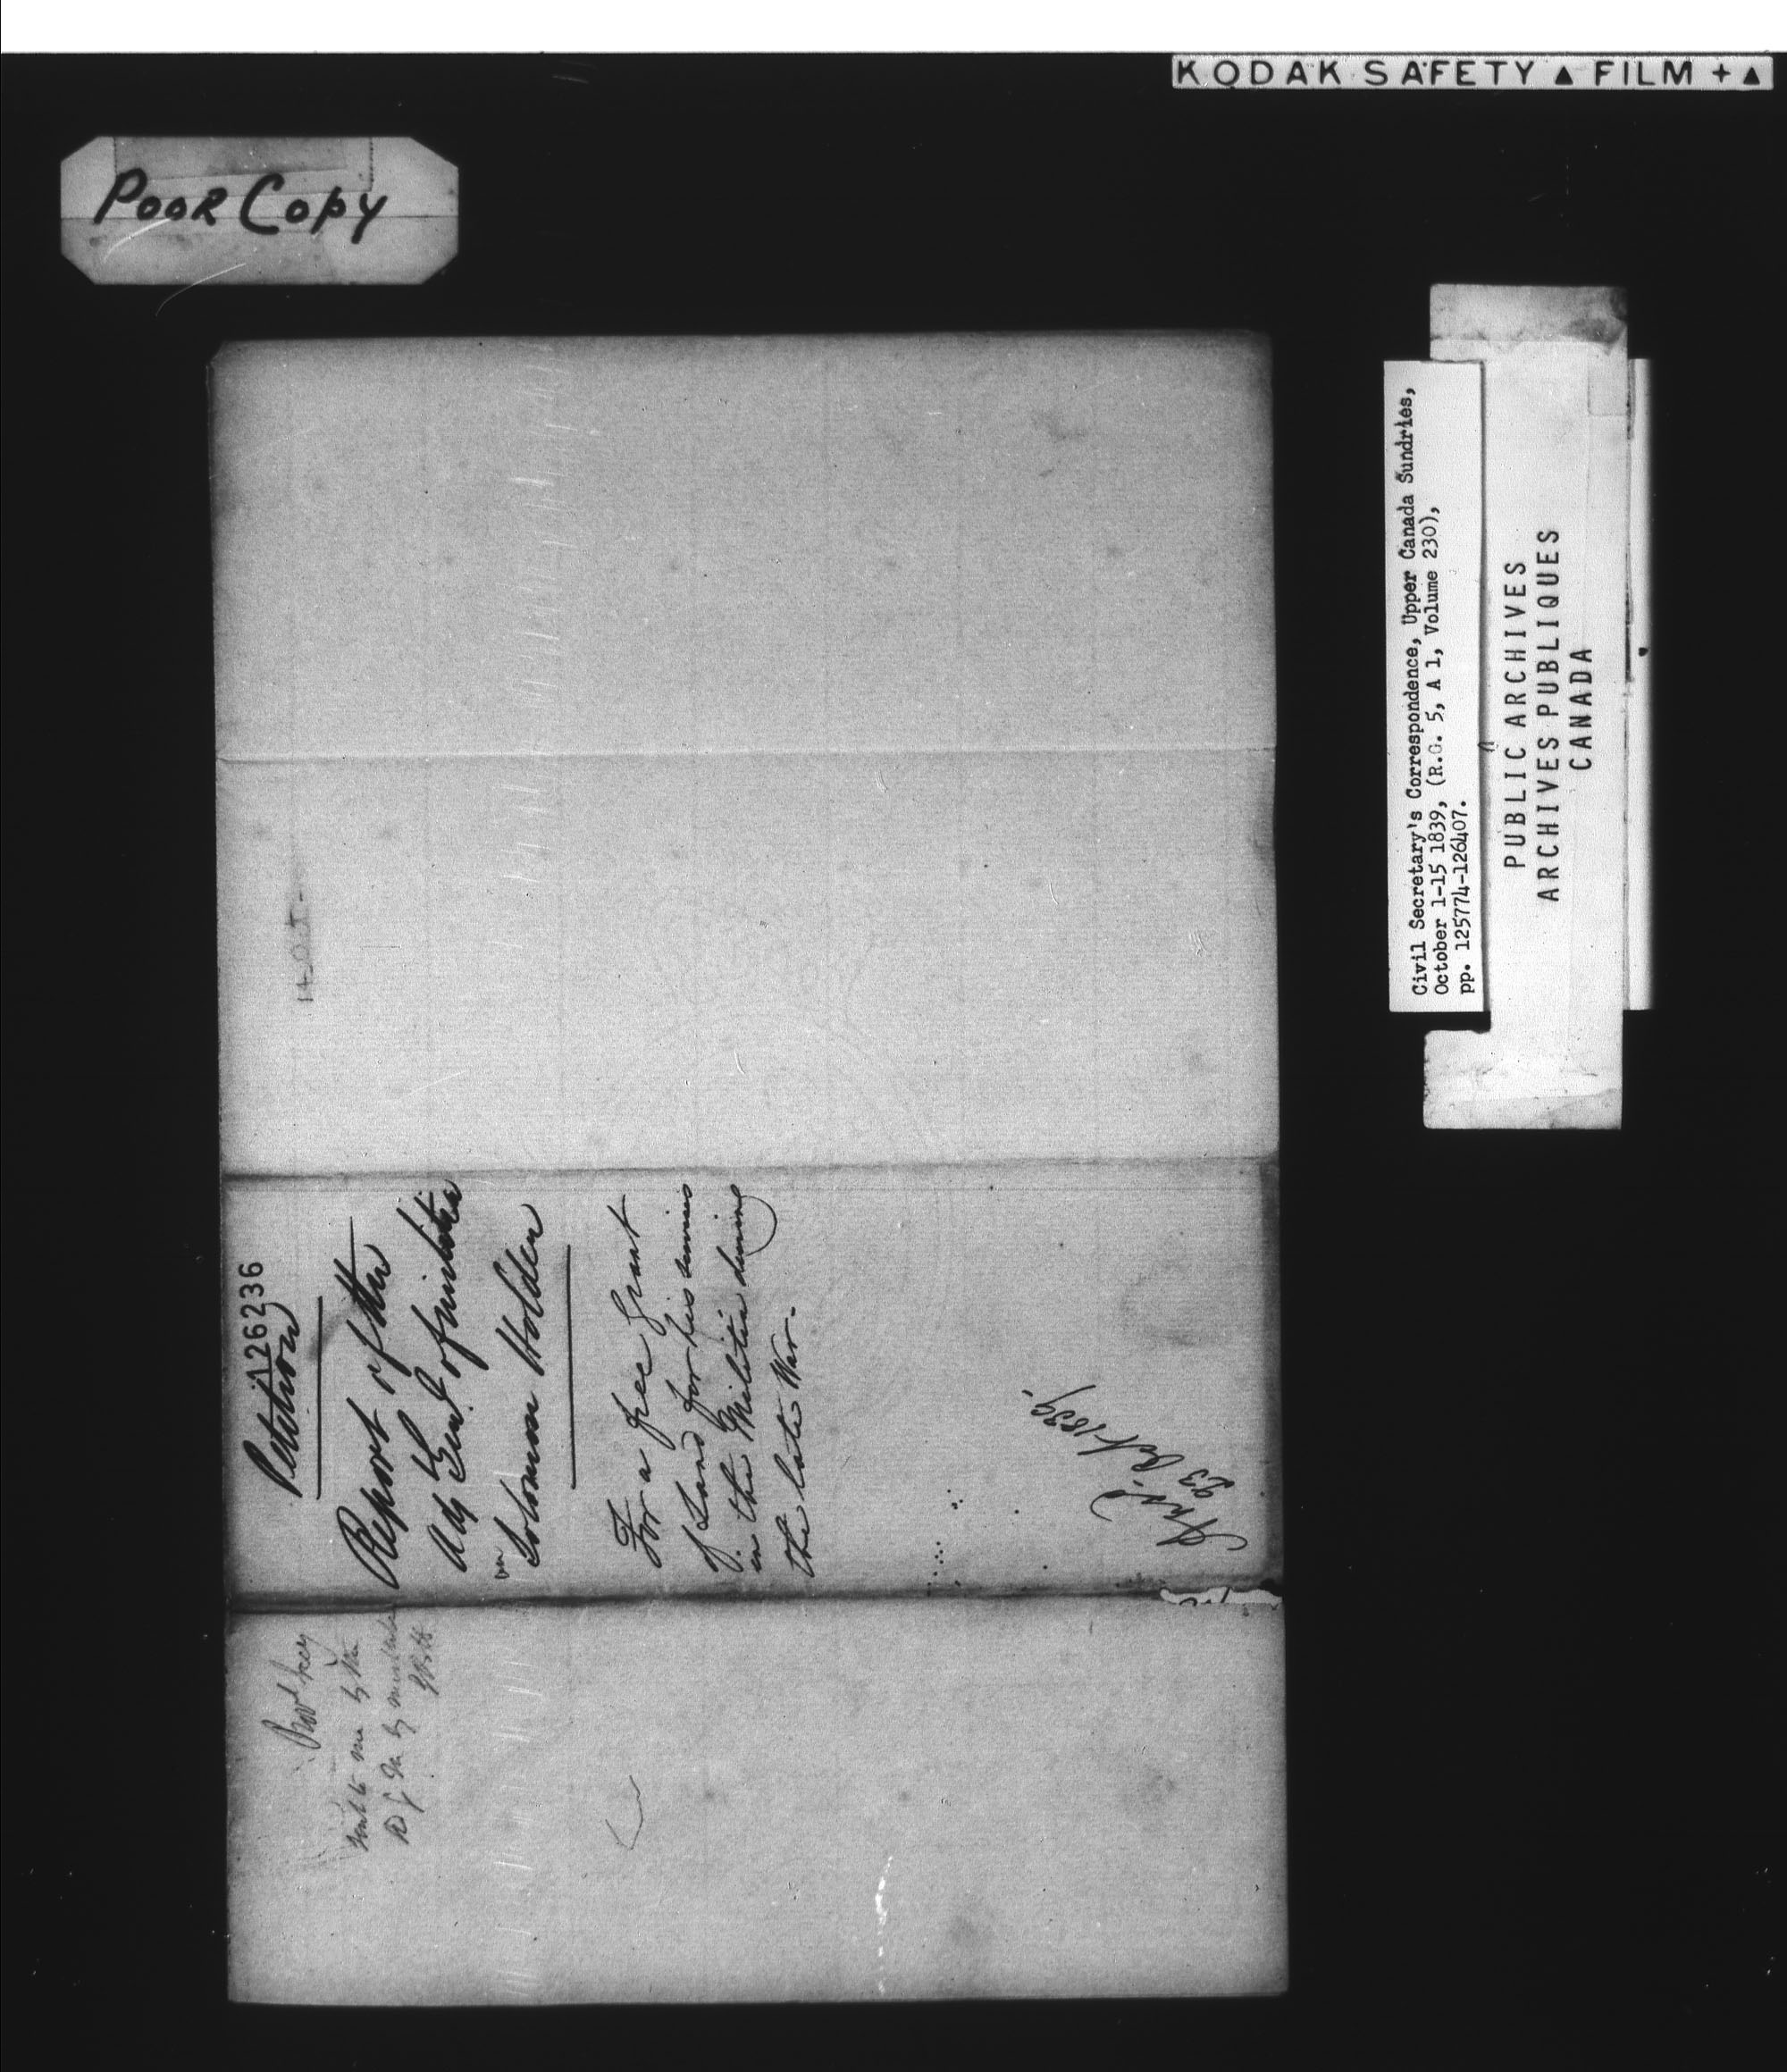 KODAK SAFETY ▲ FILM + ▲
POOR COPY
Civil Secretary's Correspondence, Upper Canada Sundries,
October 1-15 1839, (R.G. 5, A 1, Volume 230),
pp. 125774-126407.
PUBLIC ARCHIVES
ARCHIVES PUBLIQUES
CANADA
14 Oct
126236
Petition
Report of the
Adj Genl of militia
on
Solomon Holden
For a free Grant
of Land for his services
in the Militia during
the late War.
23 Oct 1839.
sent to me by the